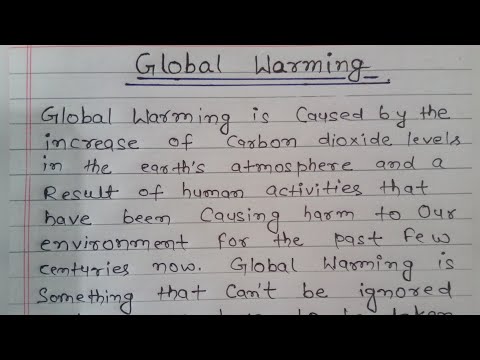 Global Warming
Global Warming is Caused by the
increase of Carbon dioxide levels
in the earth's atmosphere and a
Result of human activities that
have been Causing harm to Our
environment for the past few
centuries now. Global Warming is
Something that Can't be ignored